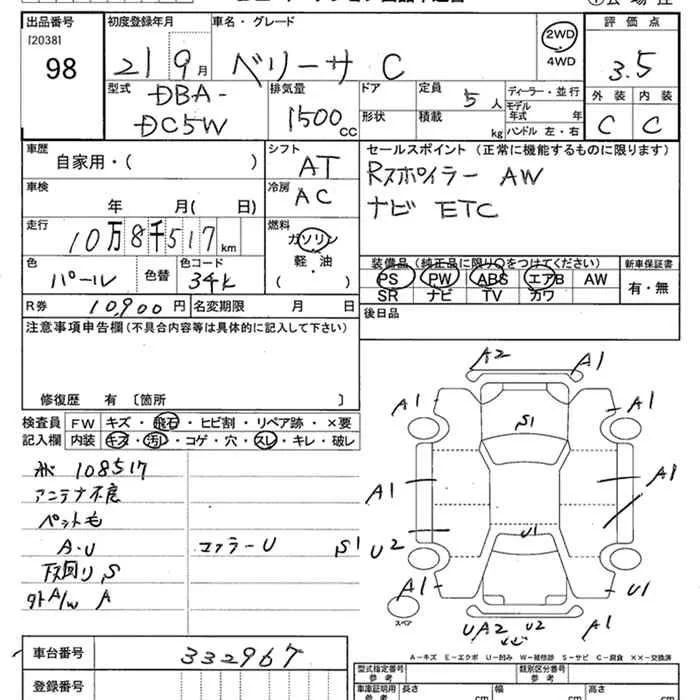 出品番号
[20381
98
初度登録年月
21 9月
車名・グレード
ベリーサ C
2WD
4WD
評価点
3.5
型式
DBA-
DC5W
排気量
1500cc
ドア
形状
定員
5人
積載
kg
ディーラー・並行
モデル
年式 年
ハンドル 左・右
外装
C
内装
C
車歴
自家用・( )
シフト
AT
セールスポイント(正常に機能するものに限ります)
Rスポイラー AW
ナビ ETC
車検
年 月( 日)
冷房
AC
走行
10万8千517km
燃料
ガソリン
軽・油
( )
色
パール
色替
色コード
34K
装備品(純正品に限り○をつけてください)
PS PW ABS エアB AW
SR ナビ TV カワ
新車保証書
有・無
R券 10,900円
名変期限 月 日
後日品
注意事項申告欄(不具合内容等は具体的に記入して下さい)
修復歴 有 〔箇所 〕
検査員
記入欄
FW キズ・飛石・ヒビ割・リペア跡・×要
内装 キズ・汚レ・コゲ・穴・スレ・キレ・破レ
108517
アンテナ不良
ペット毛
A・U
マフラーU S1
下回り S
外A/W A
A2
A1
A1
A1
S1
A1
A1
U2
U1
A1
U1
UA2
U2
A1
スペア
A-キズ E-エクボ U-凹み W-補修跡 S-サビ C-腐食 ××-交換済
車台番号
332967
登録番号
型式指定番号
参考
類別区分番号
参考
車庫証明用
参考
長さ
cm
幅
cm
高さ
cm